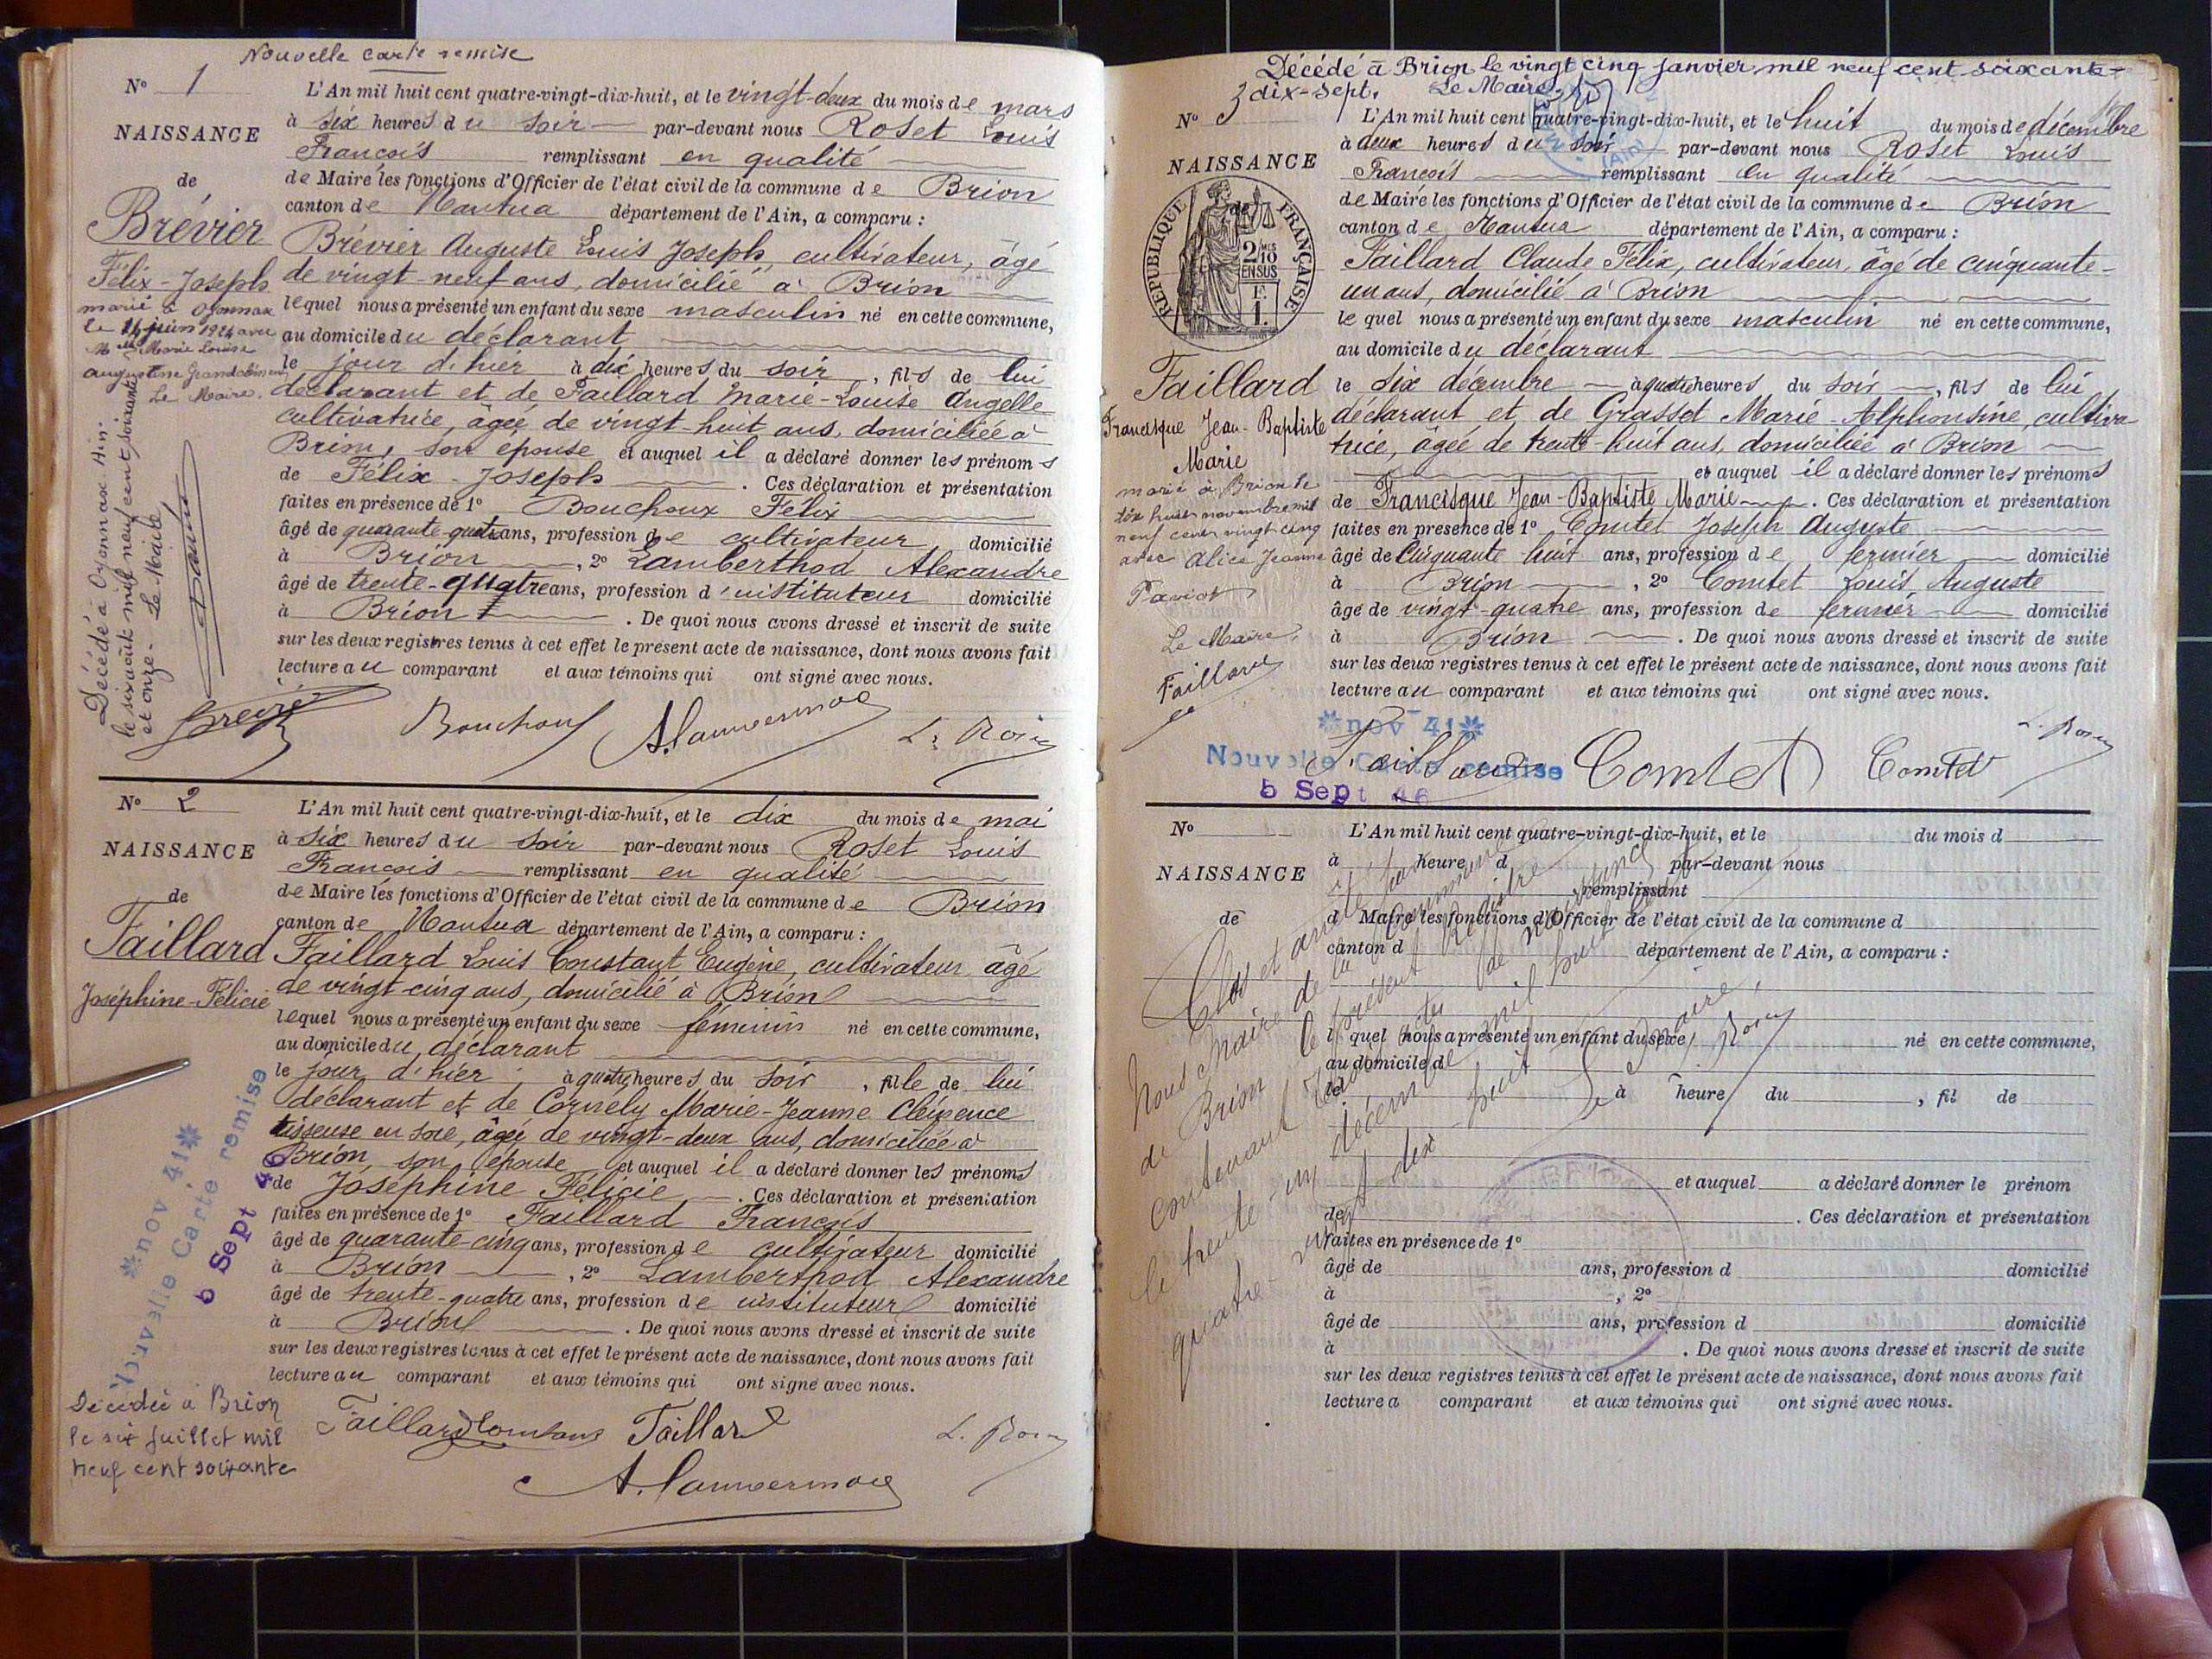 Nouvelle carte remise
N° 1
NAISSANCE
de
Brévier
Félix-Joseph
marié à Oyonnax
le 14 juin 1924 avec
Mlle Marie Louise
Augustine
Le Maire.
Décédé à Oyonnax Ain.
le six août mil neuf cent soixante
et onze. Le Maire
L'An mil huit cent quatre-vingt-dix-huit, et le vingt-deux du mois de mars
à six heures du soir par-devant nous Roset Louis
François remplissant en qualité
de Maire les fonctions d'Officier de l'état civil de la commune de Brion
canton de Nantua département de l'Ain, a comparu :
Brévier Auguste Louis Joseph, cultivateur, âgé
de vingt-neuf ans, domicilié à Brion
lequel nous a présenté un enfant du sexe masculin né en cette commune,
au domicile du déclarant
le jour d'hier à dix heures du soir, fils de lui
déclarant et de Faillard Marie-Louise Angelle
cultivatrice, âgée de vingt-huit ans, domiciliée à
Brion, son épouse et auquel il a déclaré donner les prénoms
de Félix-Joseph. Ces déclaration et présentation
faites en présence de 1° Bouchoux Félix
âgé de quarante-quatre ans, profession de cultivateur domicilié
à Brion, 2° Lamberthod Alexandre
âgé de trente-quatre ans, profession d'instituteur domicilié
à Brion. De quoi nous avons dressé et inscrit de suite
sur les deux registres tenus à cet effet le présent acte de naissance, dont nous avons fait
lecture au comparant et aux témoins qui ont signé avec nous.
Bouchoux
N° 2
NAISSANCE
de
Faillard
Joséphine-Félicie
*nov 41*
Nouvelle Carte remise
5 Sept 46
Décédée à Brion
le six juillet mil
neuf cent soixante
L'An mil huit cent quatre-vingt-dix-huit, et le dix du mois de mai
à six heures du soir par-devant nous Roset Louis
François remplissant en qualité
de Maire les fonctions d'Officier de l'état civil de la commune de Brion
canton de Nantua département de l'Ain, a comparu :
Faillard Louis Constant Eugène, cultivateur âgé
de vingt-cinq ans, domicilié à Brion
lequel nous a présenté un enfant du sexe féminin né en cette commune,
au domicile du déclarant
le jour d'hier, à quatre heures du soir, fille de lui
déclarant et de Cornély Marie-Jeanne Clémence
tisseuse en soie, âgée de vingt-deux ans, domiciliée à
Brion, son épouse et auquel il a déclaré donner les prénoms
de Joséphine Félicie. Ces déclaration et présentation
faites en présence de 1° Faillard François
âgé de quarante-cinq ans, profession de cultivateur domicilié
à Brion, 2° Lamberthod Alexandre
âgé de trente-quatre ans, profession de instituteur domicilié
à Brion. De quoi nous avons dressé et inscrit de suite
sur les deux registres tenus à cet effet le présent acte de naissance, dont nous avons fait
lecture au comparant et aux témoins qui ont signé avec nous.
Faillard Constant Faillard
Décédé à Brion le vingt cinq janvier mil neuf cent soixante-
dix-sept. Le Maire,
N° 3
NAISSANCE
REPUBLIQUE FRANÇAISE
2/10
EN SUS
F.
1.
Faillard
Francisque Jean-Baptiste
Marie
marié à Brion le
dix huit novembre mil
neuf cent vingt cinq
avec Alice Jeanne
Le Maire,
Faillard
L'An mil huit cent quatre-vingt-dix-huit, et le huit du mois de décembre
à deux heures du soir par-devant nous Roset Louis
François remplissant en qualité
de Maire les fonctions d'Officier de l'état civil de la commune de Brion
canton de Nantua département de l'Ain, a comparu :
Faillard Claude Félix, cultivateur, âgé de cinquante-
un ans, domicilié à Brion
lequel nous a présenté un enfant du sexe masculin né en cette commune,
au domicile du déclarant
le six décembre à quatre heures du soir, fils de lui
déclarant et de Grasset Marie-Alphonsine, cultiva
trice, âgée de trente-huit ans, domiciliée à Brion
et auquel il a déclaré donner les prénoms
de Francisque Jean-Baptiste Marie. Ces déclaration et présentation
faites en présence de 1° Comtet Joseph Auguste
âgé de cinquante huit ans, profession de fermier domicilié
à Brion, 2° Comtet Louis Auguste
âgé de vingt-quatre ans, profession de fermier domicilié
à Brion. De quoi nous avons dressé et inscrit de suite
sur les deux registres tenus à cet effet le présent acte de naissance, dont nous avons fait
lecture au comparant et aux témoins qui ont signé avec nous.
*nov 41*
Nouvelle Carte remise
5 Sept 46
Faillard Comtet Comtet
N°
NAISSANCE
de
L'An mil huit cent quatre-vingt-dix-huit, et le du mois d
à heure d par-devant nous
remplissant
d Maire les fonctions d'Officier de l'état civil de la commune d
canton d département de l'Ain, a comparu :
l quel nous a présenté un enfant du sexe né en cette commune,
au domicile d
le à heure du, fil de
et auquel a déclaré donner le prénom
de. Ces déclaration et présentation
faites en présence de 1°
âgé de ans, profession d domicilié
à, 2°
âgé de ans, profession d domicilié
à. De quoi nous avons dressé et inscrit de suite
sur les deux registres tenus à cet effet le présent acte de naissance, dont nous avons fait
lecture a comparant et aux témoins qui ont signé avec nous.
Clos et arrêté par
Nous Maire de la Commune
de Brion le présent Registre
contenant trois actes de naissance
le trente-un décembre mil huit cent
quatre-vingt-dix-huit
Le Maire,